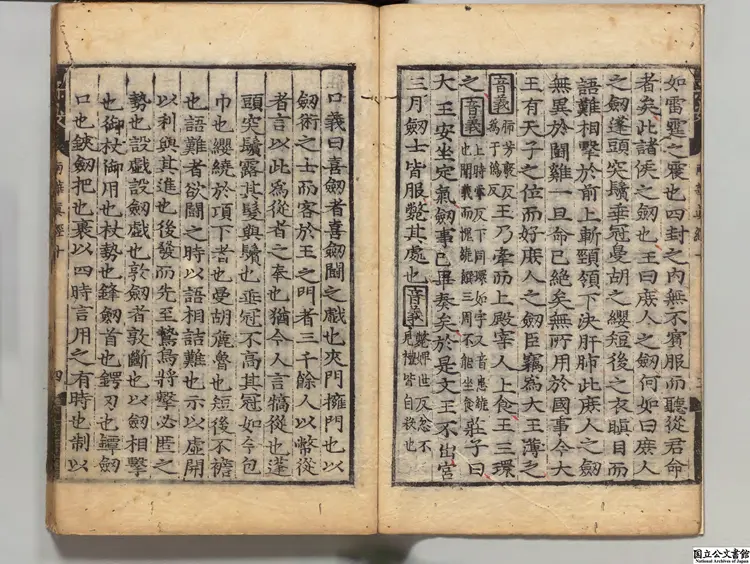 如雷霆之震也四封之内無不賓服而聽從君命
者矣此諸侯之劔也王曰庶人之劔何如曰庶人
之劔蓬頭突鬢垂冠曼胡之纓短後之衣瞋目而
語難相擊於前上斬頸領下決肝肺此庶人之劔
無異於鬪雞一旦命已絶矣無所用於國事今大
王有天子之位而好庶人之劔臣竊爲大王薄之
音義 肺芳廢反為于僞反 王乃牽而上殿宰人上食王三環
之 音義 上時掌反下同環如字又音患繞也聞義而愧繞饌三周不能坐食 莊子曰
大王安坐定氣劔事已畢奏矣於是文王不出宮
三月劔士皆服斃其處也 音義 斃婢世反忿不見禮皆自殺也
口義曰喜劔者喜劔鬪之戲也夾門擁門也以
劔術之士而客於王之門者三千餘人以幣從
者言以此爲從者之奉也猶今人言犒從也蓬
頭突鬢露其髮與鬢也垂冠不高其冠如今包
巾也纓繞於項下者也曼胡麄魯也短後不襜
也語難者欲鬪之時以語相詰難也示以虛開
以利與其進也後發而先至鷙鳥將擊必匿之
勢也設戲設劔戲也敦劔者敦斷也以劔相擊
也御杖御用也杖勢也鋒劔首也鍔刃也鐔劔
口也鋏劔把也裹以四時言用之有時也制以
四
国立公文書館
National Archives of Japan